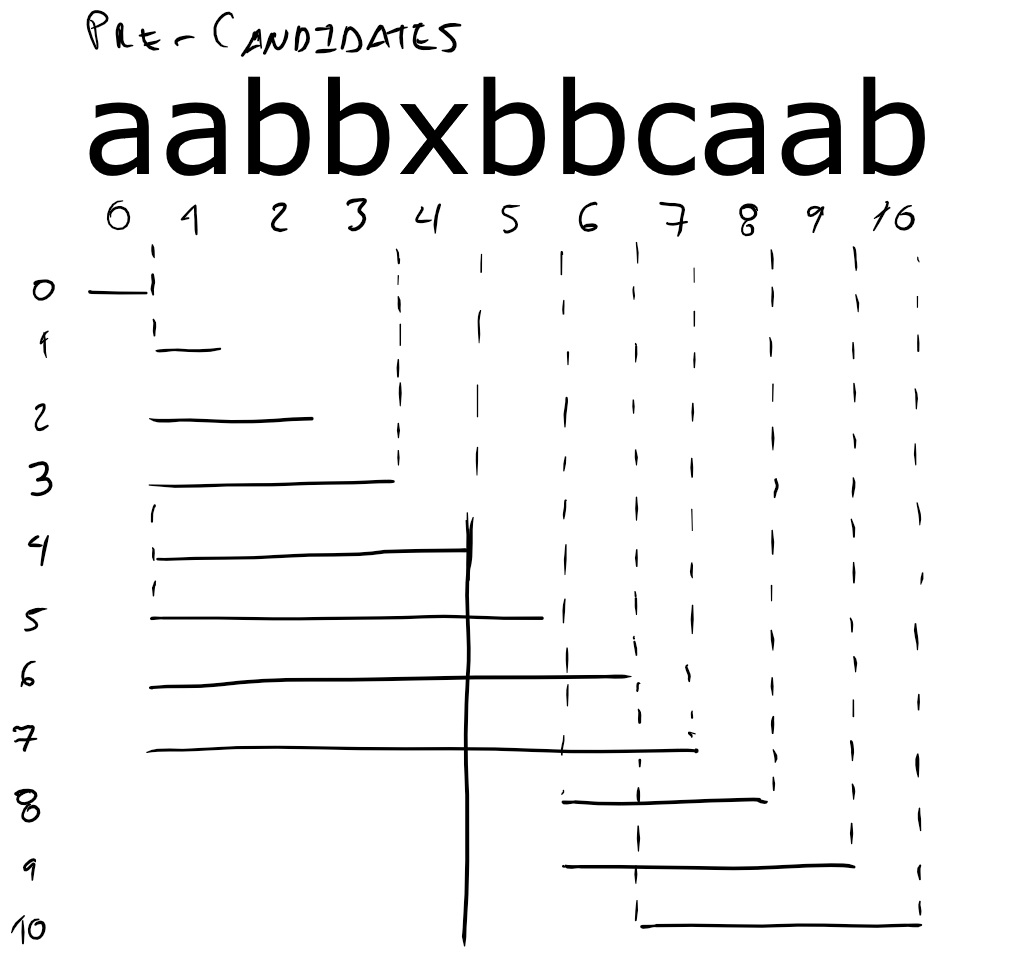 PRE-CANDIDATES
aabbxbbcaab
0 1 2 3 4 5 6 7 8 9 10
0
1
2
3
4
5
6
7
8
9
10